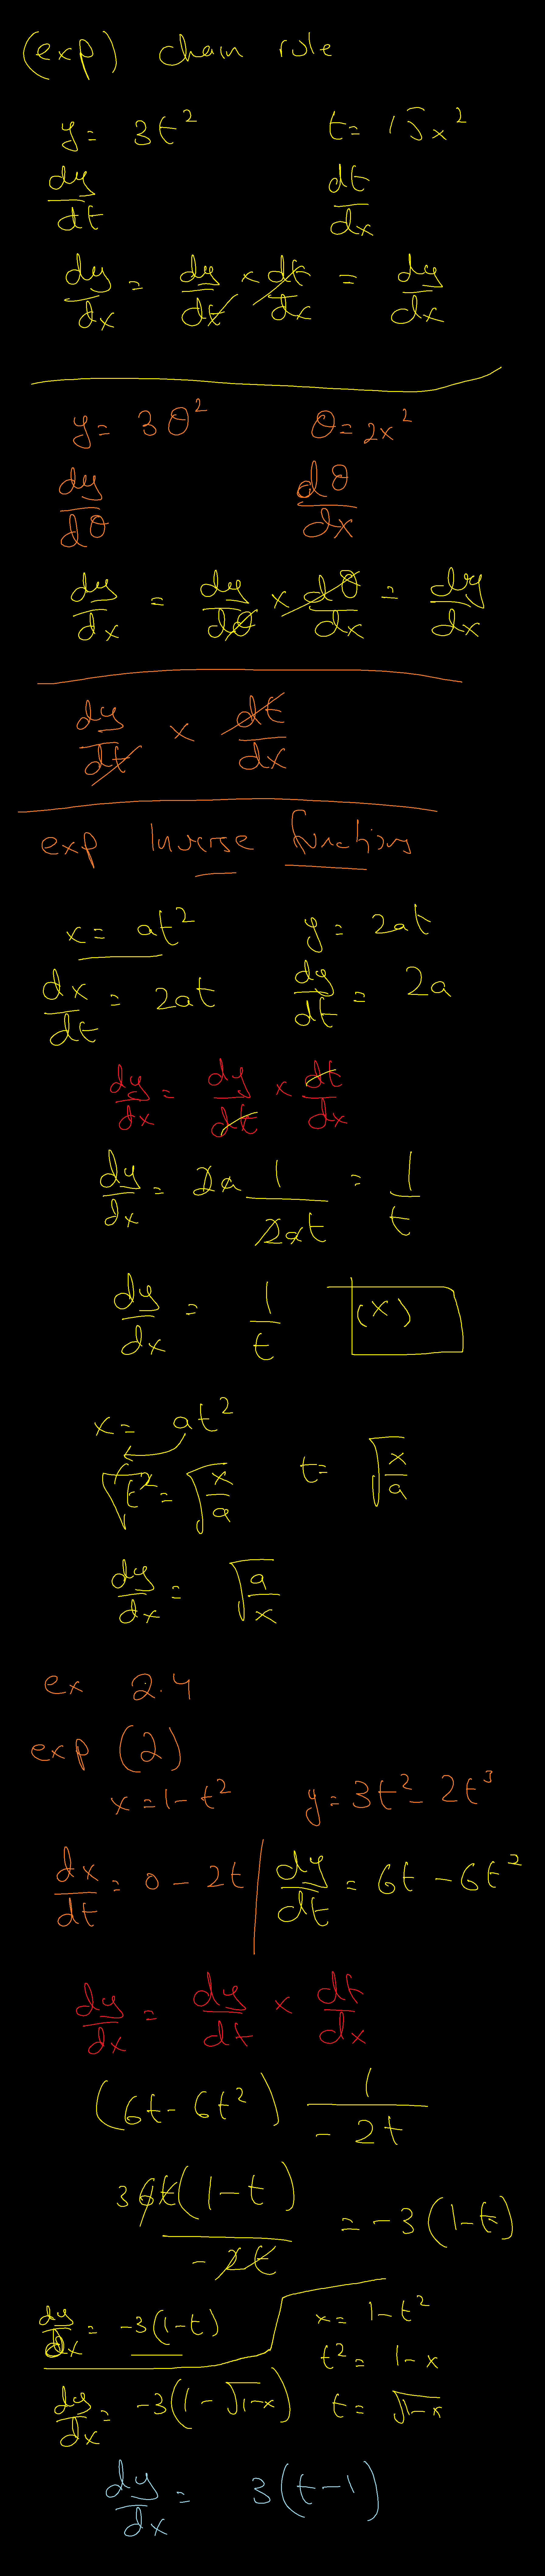 (exp) chain rule
y = 3t² t = 15x²
dy/dt dt/dx
dy/dx = dy/dt × dt/dx = dy/dx
y = 3θ² θ = 2x²
dy/dθ dθ/dx
dy/dx = dy/dθ × dθ/dx = dy/dx
dy/dt × dt/dx
exp Inverse functions
x = at² y = 2at
dx/dt = 2at dy/dt = 2a
dy/dx = dy/dt × dt/dx
dy/dx = 2a 1/2at = 1/t
dy/dx = 1/t (x)
x = at²
√t² = √x/a t = √x/a
dy/dx = √a/x
ex 2.4
exp (2)
x = 1 - t² y = 3t² - 2t³
dx/dt = 0 - 2t dy/dt = 6t - 6t²
dy/dx = dy/dt × dt/dx
(6t - 6t²) 1/-2t
3 6t(1-t)/-2t = -3(1-t)
dy/dx = -3(1-t) x = 1-t²
t² = 1-x
dy/dx = -3(1-√1-x) t = √1-x
dy/dx = 3(t-1)